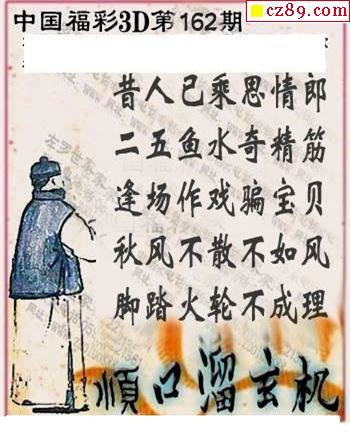 cz89.com
中国福彩3D第162期
昔人已乘思情郎
二五鱼水奇精筋
逢场作戏骗宝贝
秋风不散不如风
脚踏火轮不成理
顺口溜玄机